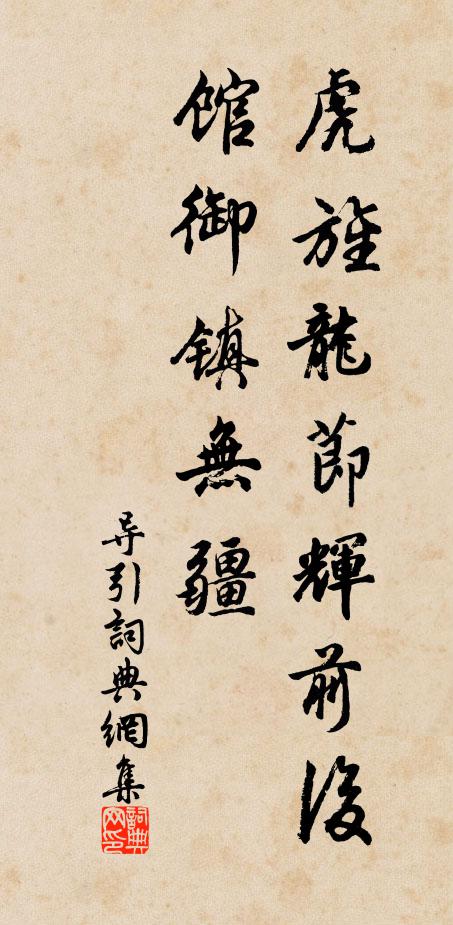 虎旌龍節輝前後
馆御鎮無疆
导引詞典網集
詞典网印